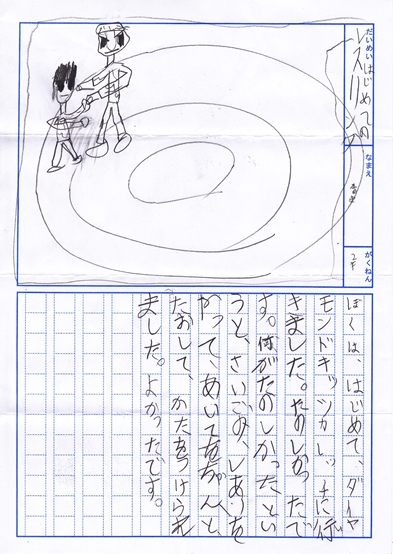 だいめい
はじめての
レスリング
なまえ
がくねん
2年
ぼくは、はじめて、ダイヤ
モンドキッツカレッチに行
きました。たのしかったで
す。何がたのしかったとい
うと、さいごの、しあいを
やって、あいてをちゃんと、
たおして、かたをつけられ
ました。よかったです。